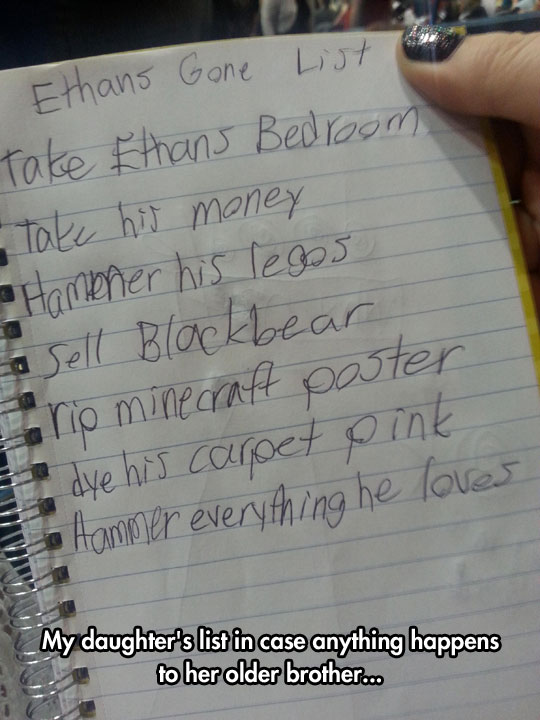 Ethans Gone List
take Ethans Bedroom
Take his money
Hammer his legos
Sell Blackbear
rip minecraft poster
dye his carpet pink
Hammer everything he loves
My daughter's list in case anything happens
to her older brother...